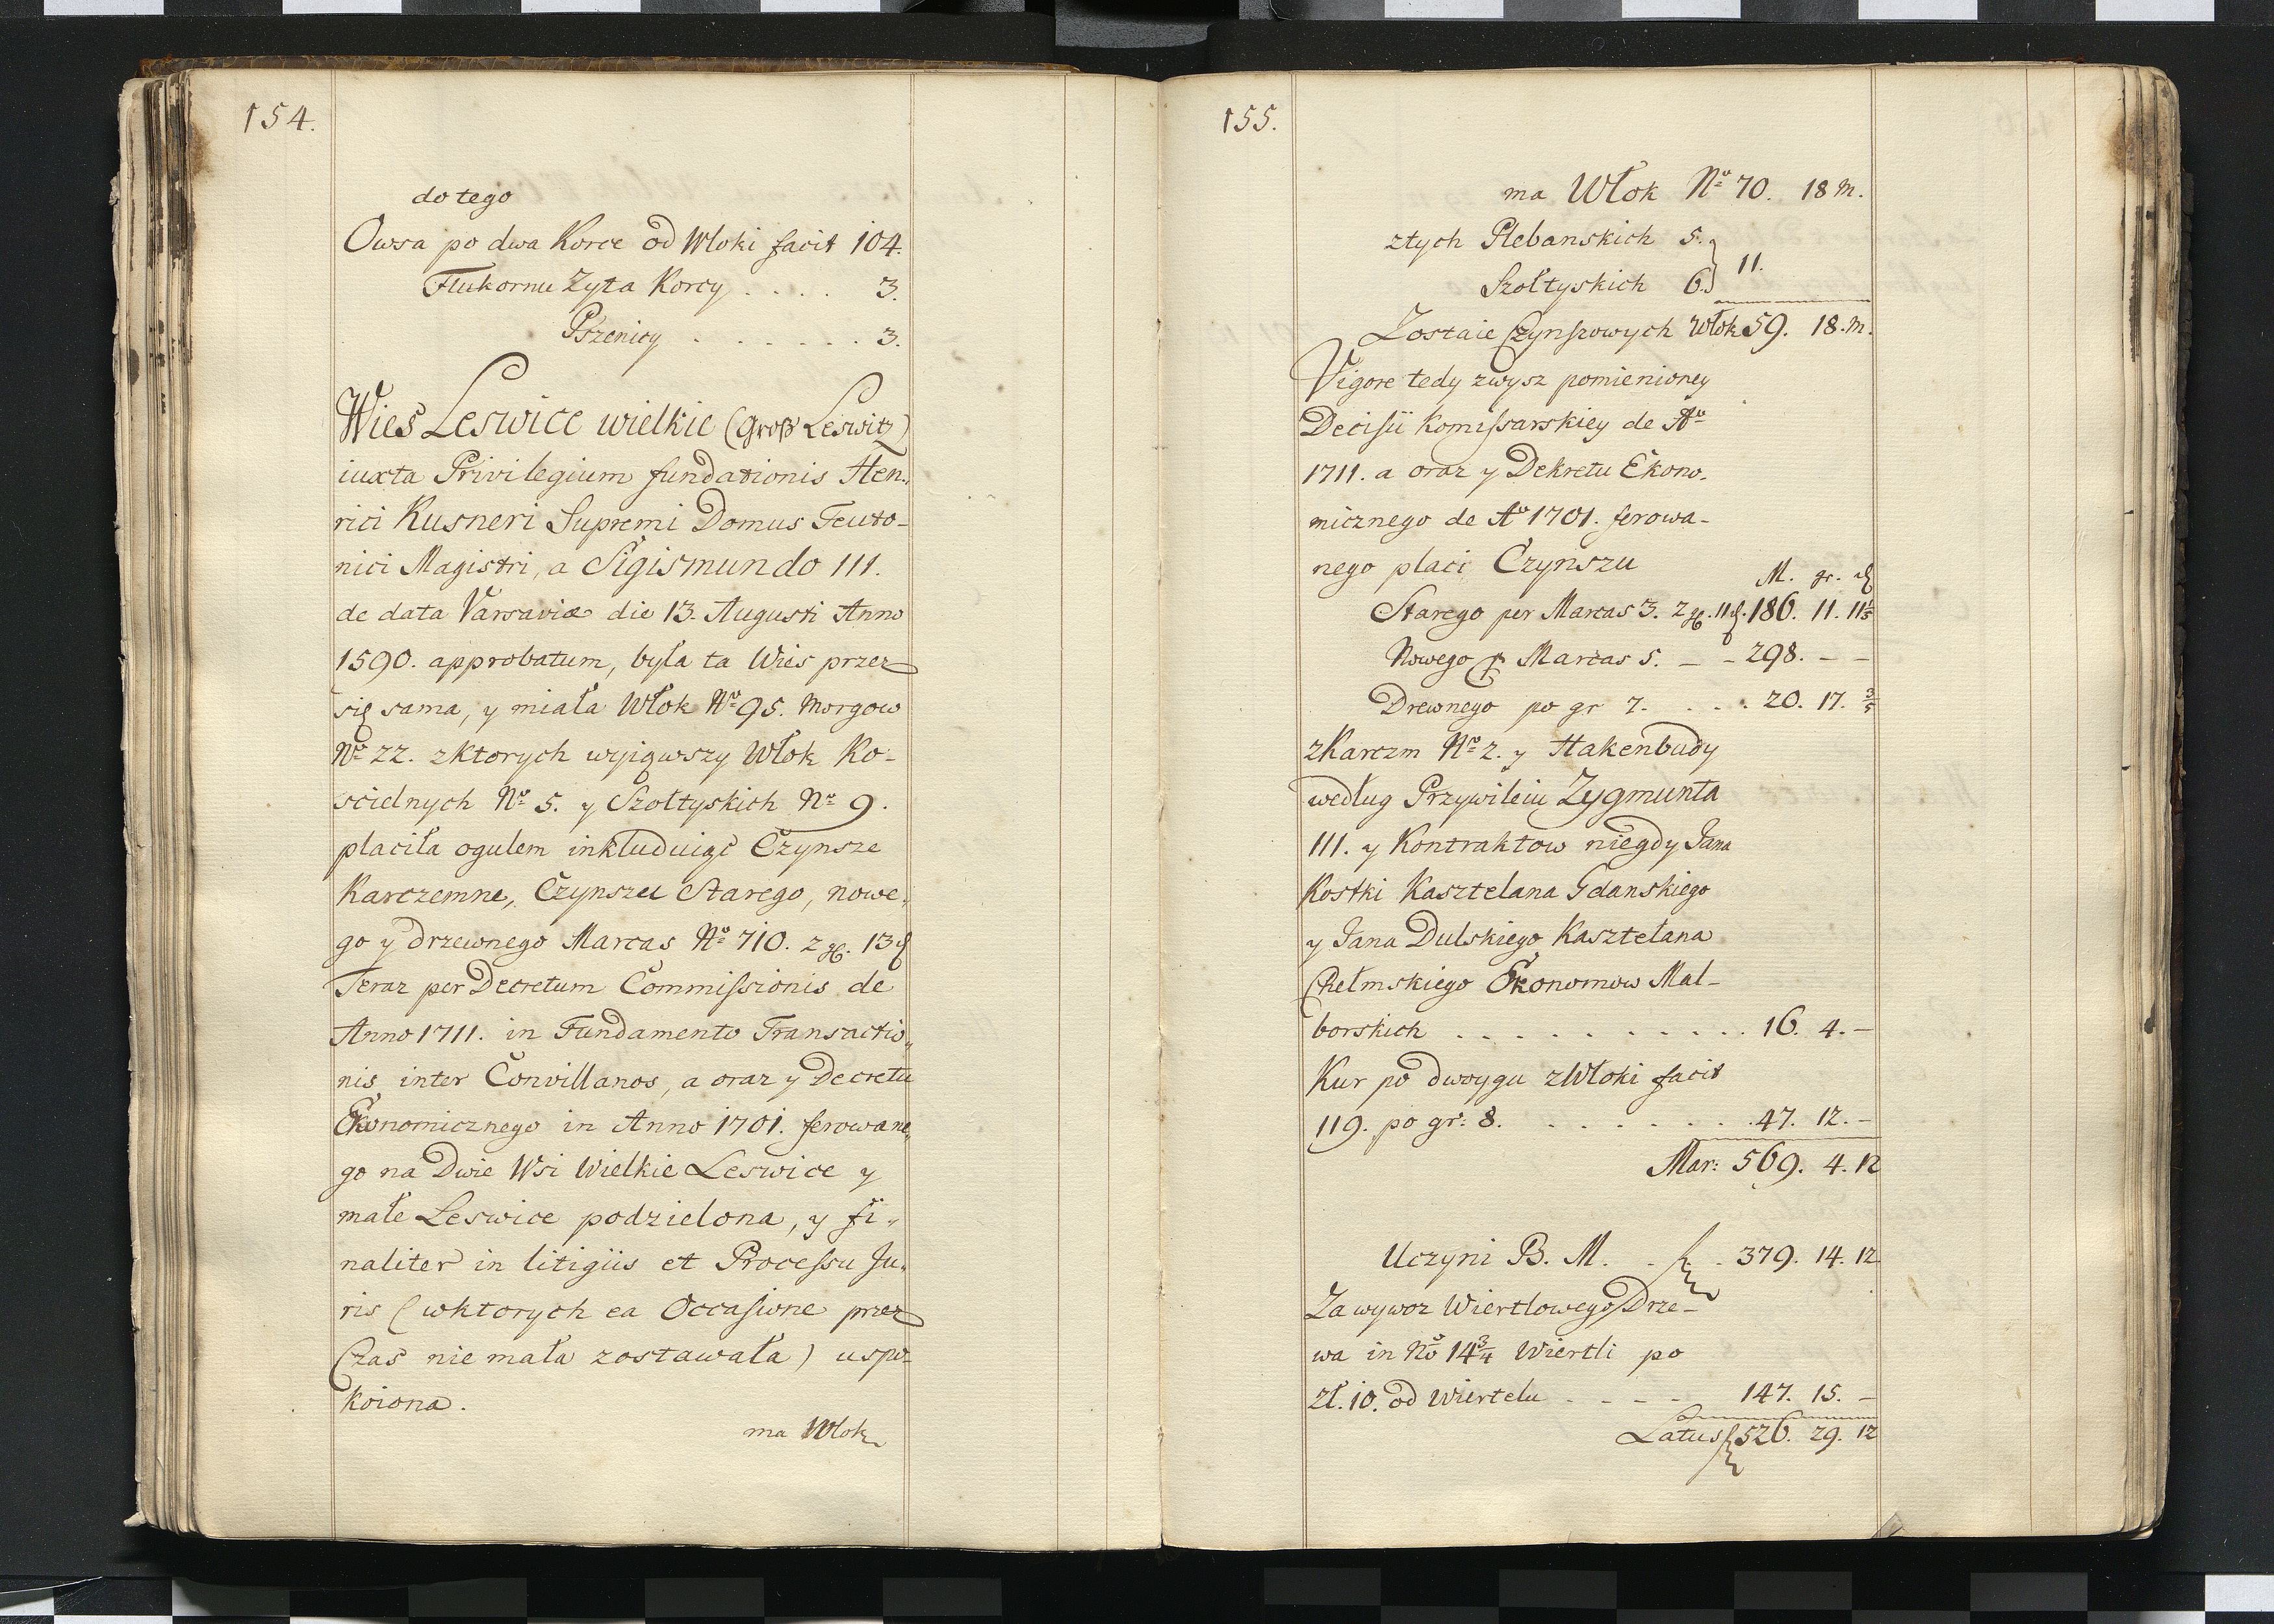 154.
do tego
Owsa po dwa Korce od Wloki facit 104.
Flukornu Zyta Korcy . . . . 3.
Pszenicy . . . . . . . 3.
Wieś Leswice wielkie (Groß Leswitz)
iuxta Privilegium fundationis Hen„
rici Kusneri Supremi Domus Teuto-
nici Magistri, a Sigismundo III.
de data Varsaviæ die 13. Augusti Anno
1590. approbatum, była ta Wieś przez
się sama, y miała Włok No 95. Morgow
No 22. zktorych wyiąwszy Włok Ko-
scielnych No 5. y Szołtyskich No 9.
placiła ogulem inkluduiąc Czynsze
Karczemne, Czynszu Starego, nowe„
go y drzewnego Marcas No 710. 2 gr. 13 ₰
Teraz per Decretum Commissionis de
Anno 1711. in Fundamento Transactio„
nis inter Convillanos, a oraz y Decretu
Ekonomicznego in Anno 1701. ferowane„
go na Dwie Wsi Wielkie Leswice y
małe Leswice podzielona, y fi„
naliter in litigiis et Processu Ju„
ris (wktorych ea Occasione przez
Czas nie mała zostawała) uspo-
koiona.
ma Wlok
155.
ma Włok No 70. 18 m.
ztych Plebanskich 5.
11.
Szołtyskich 6.
Zostaie Czynszowych Włok 59. 18. m.
Vigore tedy zwysz pomienioney
Decisii Komissarskiey de Ao
1711. a oraz y Dekretu Ekono-
micznego de Ao 1701. ferowa-
nego placi Czynszu
M. gr. ₰
Starego per Marcas 3. 2 gr. 11 ₰. 186. 11. 11 1/5
Nowego p Marcas 5. – – 298. – –
Drewnego po gr 7. . . . 20. 17. 3/5
zKarczm No 2. y Hakenbudy
według Przywileiu Zygmunta
III. y Kontraktow niegdy Jana
Kostki Kasztelana Gdanskiego
y Jana Dulskiego Kasztelana
Chełmskiego Ekonomow Mal-
borskich . . . . . . . . . . . 16. 4. –
Kur po dwoygu zWłoki facit
119. po gr: 8. . . . . . . . 47. 12. –
Mar: 569. 4. 12
Uczyni B. M. . f. . 379. 14. 12
Za wywoz Wiertlowego Drze-
wa in No 14 3/4 Wiertli po
zł. 10. od Wiertelu – – – – 147. 15. –
Latus f 526. 29. 12